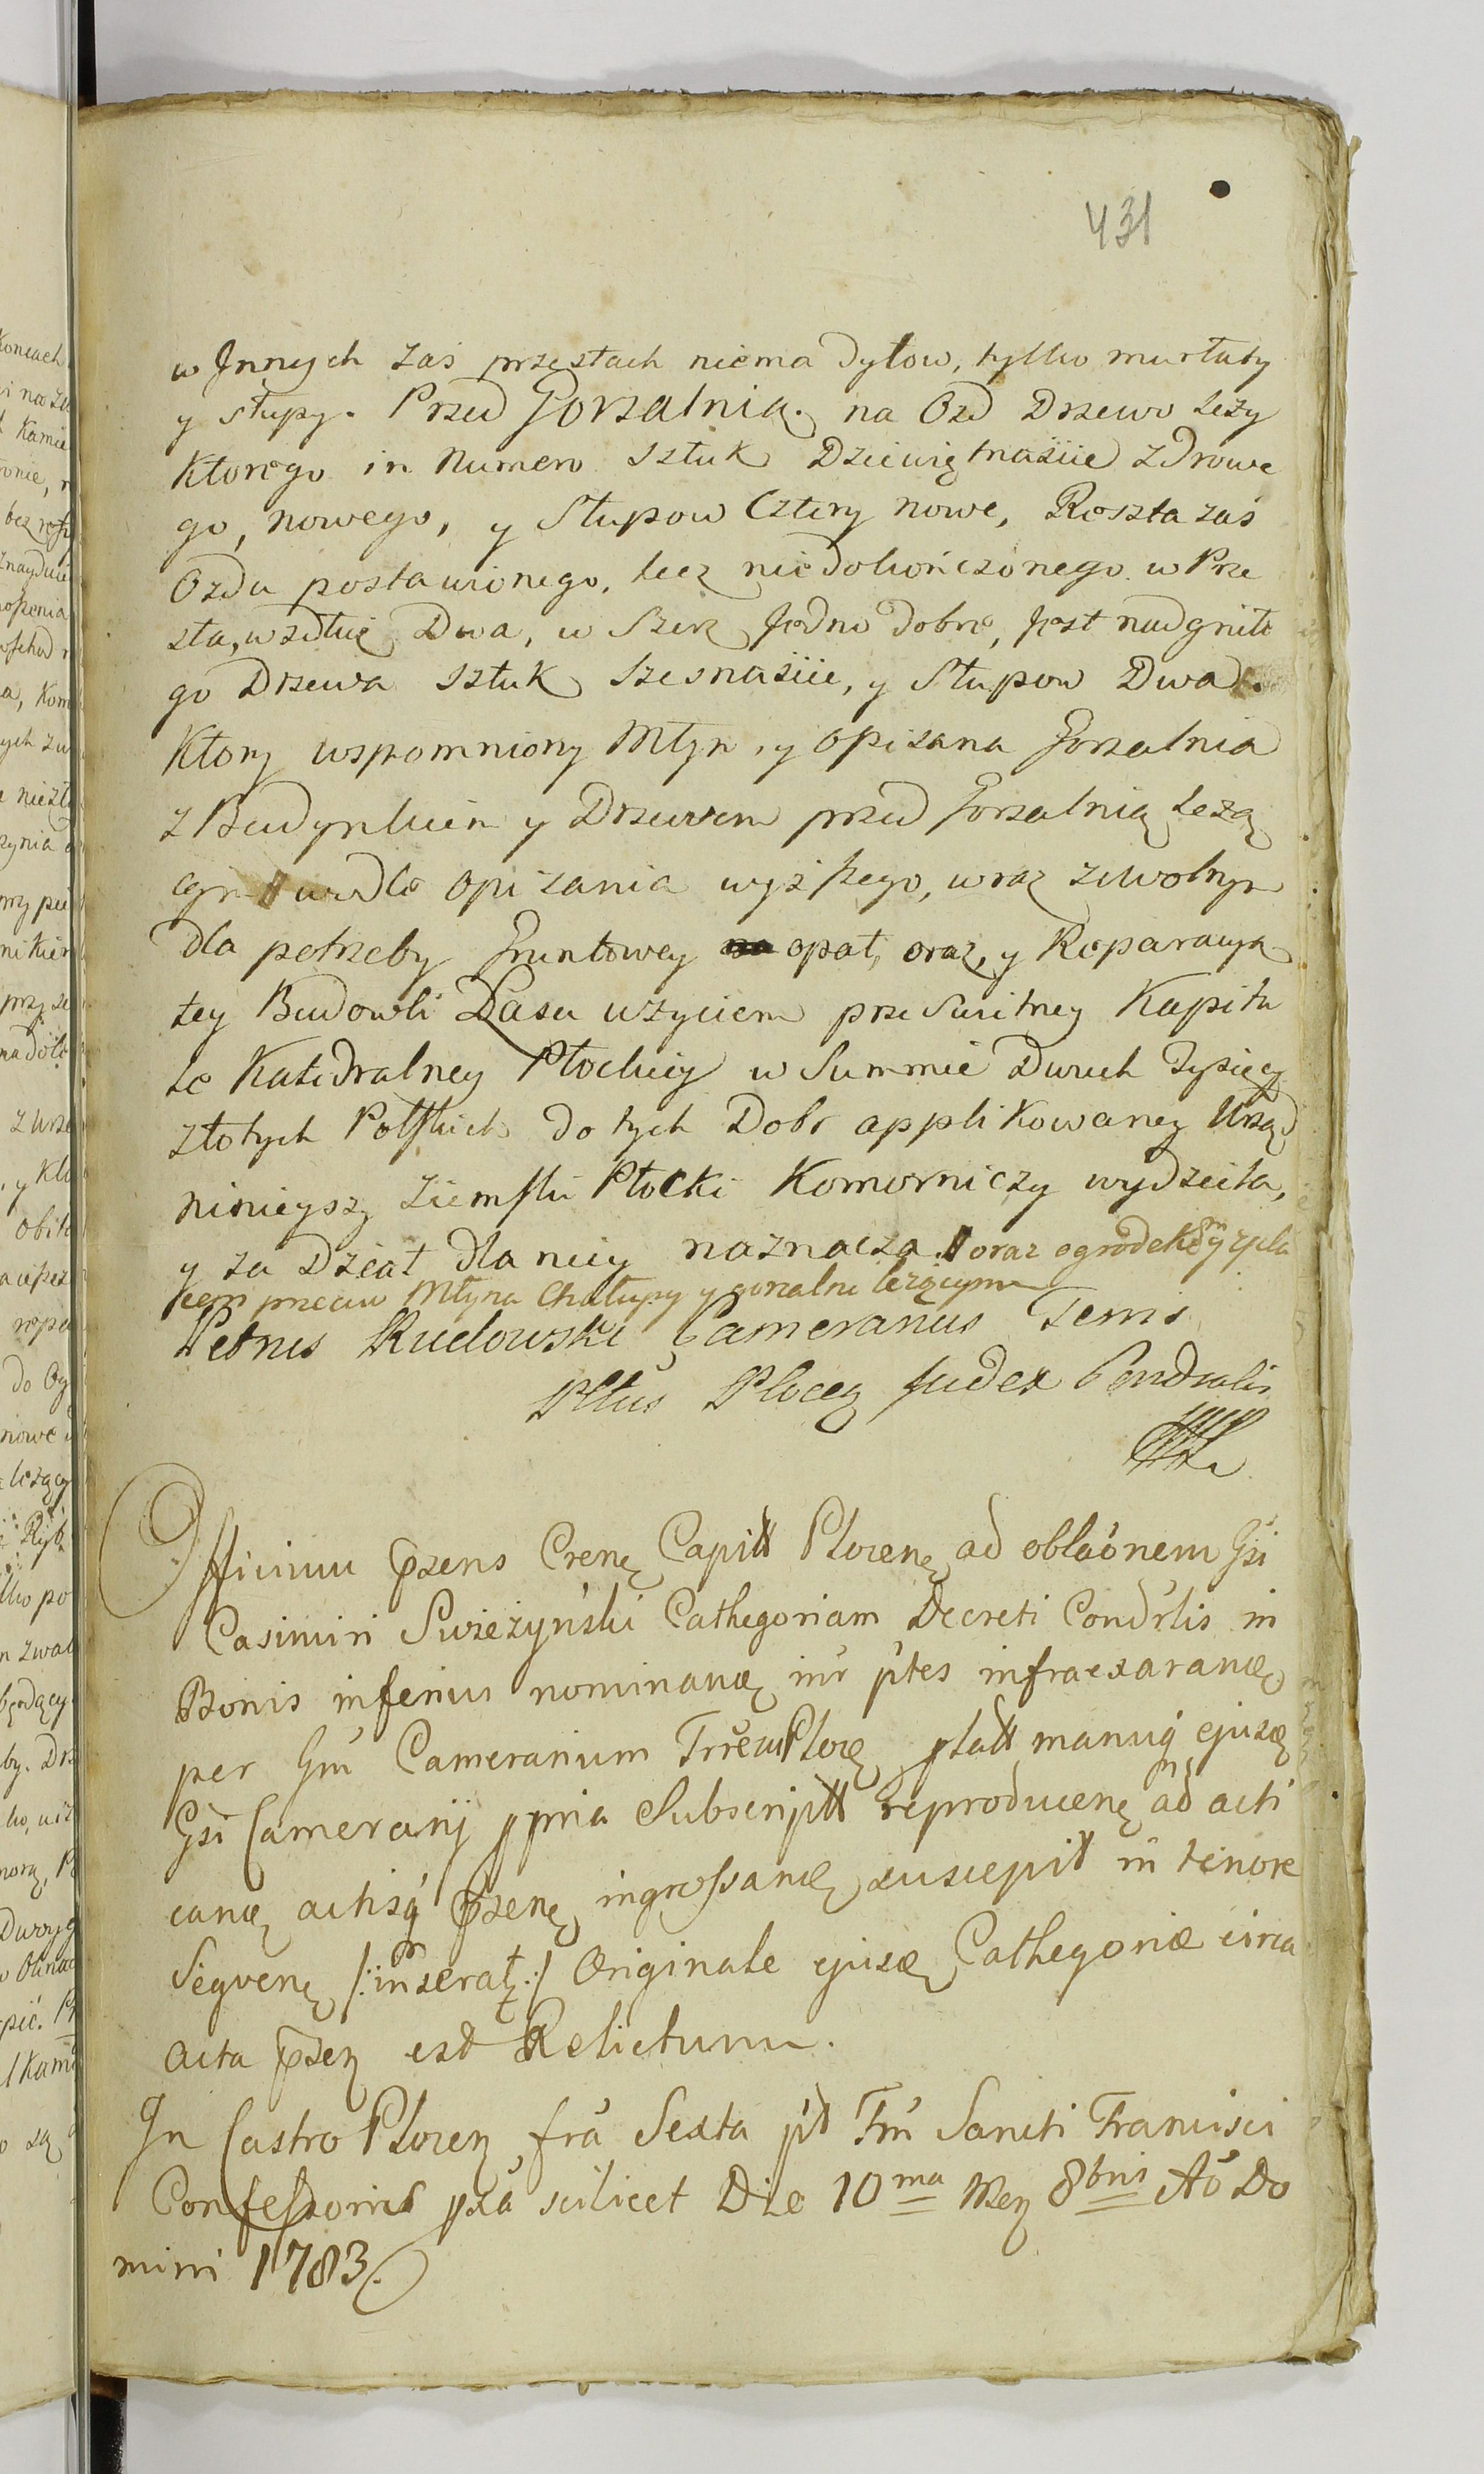 431
w Innych zaś przęsłach niema dylow, tylko murłaty
y słupy. Przed Gorzalnią. na Ozd Drzewo leży
Ktorego in Numero Sztuk Dziewiętnaście zdrowe
go, nowego, y Słupow Cztery nowe, Reszta zaś
Ozdu postawionego, lecz niedokończonego w Prze
sła, wzdłuż Dwa, w Szerz Jedno dobre, jest nadgniłe
go Drzewa Sztuk Szesnaście, y Słupow Dwa.
Ktory wspomniony Młyn, y opisana Gorzalnia
z Budynkiem y Drzewem przed Gorzalnią leżą
cym wedle opisania wyższego, wraz z wolnym
dla potrzeby Gruntowey opał, oraz, y Reparacyą
tey Budowli Lasu użyciem prześwitney Kapitu
le Katedralney Płockiey w Summie Dwuch Tysięcy
złotych Polskich do tych Dobr applikowaney Urząd
ninieyszy Ziemski Płocki Komorniczy wydziela,
y za Dział dla niey naznacza. oraz ogrodekiem y zpla
cem przeciw Młyna Chałupy y gorzalni leżącym
Petrus Rudowski Camerarius Terris
Pltus Plocen Judex Condralis
Officium pzens Crense Capitt Plocens ad oblaonem Gsi
Casimiri Swieżyński Cathegoriam Decreti Condrlis in
Bonis inferius nominand inr ptes infraexarand
per Gm Camerarium Trrem Ploc platt manuq ejusd
Gsi Camerarij ppria Subscriptt reproducen ad acti
cand actisq pzen ingrossand suscepit in tenore
Sequen /: inserat :/ Originale ejusd Cathegoriæ circa
acta pzen est Relictum.
In Castro Plocen fra Sexta pt Fm Sancti Francisci
Confessoris pxa scilicet Die 10ma Mens 8bris Ao Do
mini 1783.